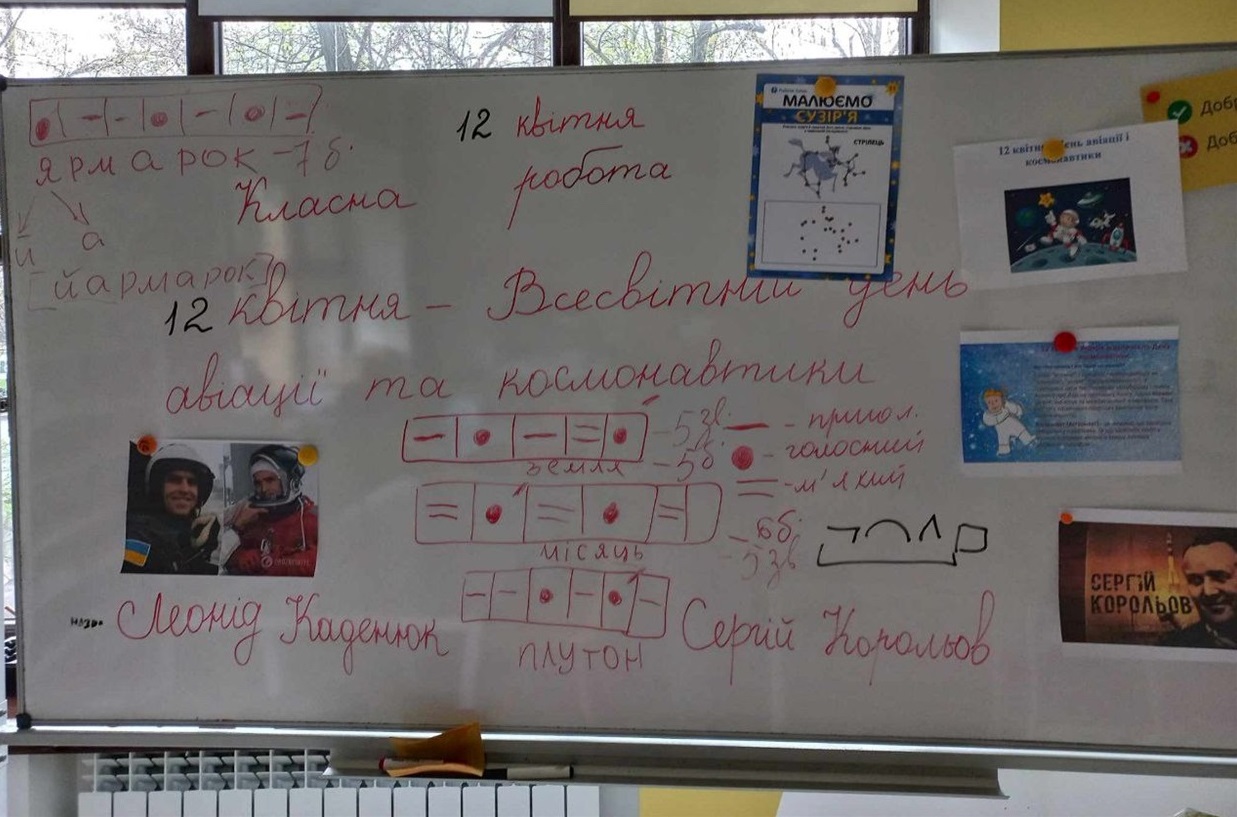 12 квітня
ярмарок - 7 б.
Класна робота
й а
[йармарок]
12 квітня - Всесвітній день
авіації та космонавтики
- 5 зв. - пригол.
земля - 5 б - голосний
= - м'який
- 6 б.
місяць - 5 зв
Леонід Каденюк
плутон
Сергій Корольов
МАЛЮЄМО
СУЗІР'Я
СТРІЛЕЦЬ
12 квітня день авіації і
космонавтики
Добр
Доб
СЕРГІЙ
КОРОЛЬОВ